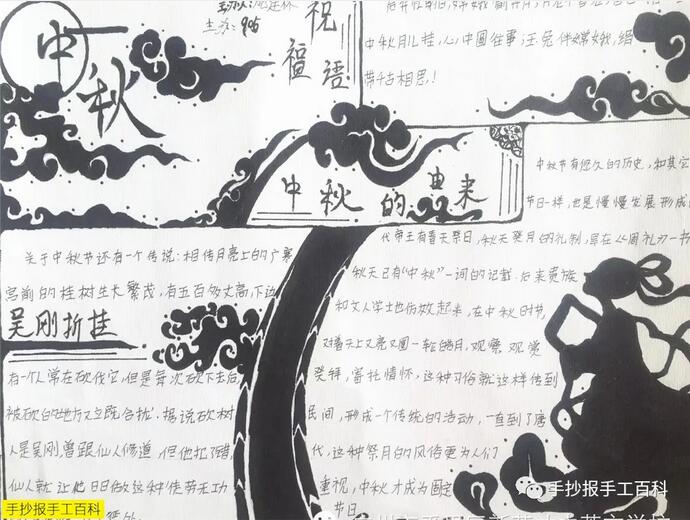 中秋
主办：906
祝福语
中秋月儿挂，心中圆往事；玉兔伴嫦娥，缙
带古相思！
中秋的由来
中秋节有悠久的历史，和其它
节日一样，也是慢慢发展形成
代帝王有春天祭日，秋天祭月的礼制，早在《周礼》一书
秋天已有“中秋”一词的记载．后来贵族
和文人学士也仿效起来，在中秋时节，
对着天上又亮又圆一轮皓月，观赏
祭拜，寄托情怀，这种习俗就这样传到
民间，形成一个传统的活动，一直到了唐
代，这种祭月的风俗更为人们
重视，中秋才成为固定
节日
关于中秋节还有一个传说：相传月亮上的广寒
宫前的桂树生大繁茂，有五百多丈高，下边
吴刚折桂
有一个人常在砍伐它，但是每次砍下去后
被砍的地方又立既合拢．据说砍树
人是吴刚，曾跟仙人修道，但他犯了错，
仙人就让他日日做这种徒劳无功
手抄报手工百科
手抄报手工百科